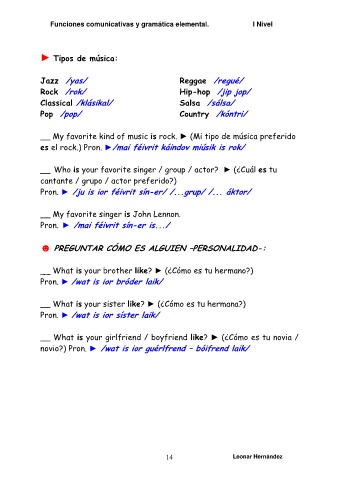 Funciones comunicativas y gramática elemental. I Nivel
► Tipos de música:
Jazz /yas/ Reggae /regué/
Rock /rok/ Hip-hop /jip jop/
Classical /klásikal/ Salsa /sálsa/
Pop /pop/ Country /kóntri/
__ My favorite kind of music is rock. ► (Mi tipo de música preferido
es el rock.) Pron. ►/mai féivrit káindov miúsik is rok/
__ Who is your favorite singer / group / actor? ► (¿Cuál es tu
cantante / grupo / actor preferido?)
Pron. ► /ju is ior féivrit sín-er/ /...grup/ /... áktor/
__ My favorite singer is John Lennon.
Pron. ► /mai féivrit sín-er is.../
☻ PREGUNTAR CÓMO ES ALGUIEN –PERSONALIDAD-:
__ What is your brother like? ► (¿Cómo es tu hermano?)
Pron. ► /wat is ior bróder laik/
__ What is your sister like? ► (¿Cómo es tu hermana?)
Pron. ► /wat is ior síster laik/
__ What is your girlfriend / boyfriend like? ► (¿Cómo es tu novia /
novio?) Pron. ► /wat is ior guérlfrend – bóifrend laik/
14 Leonar Hernández